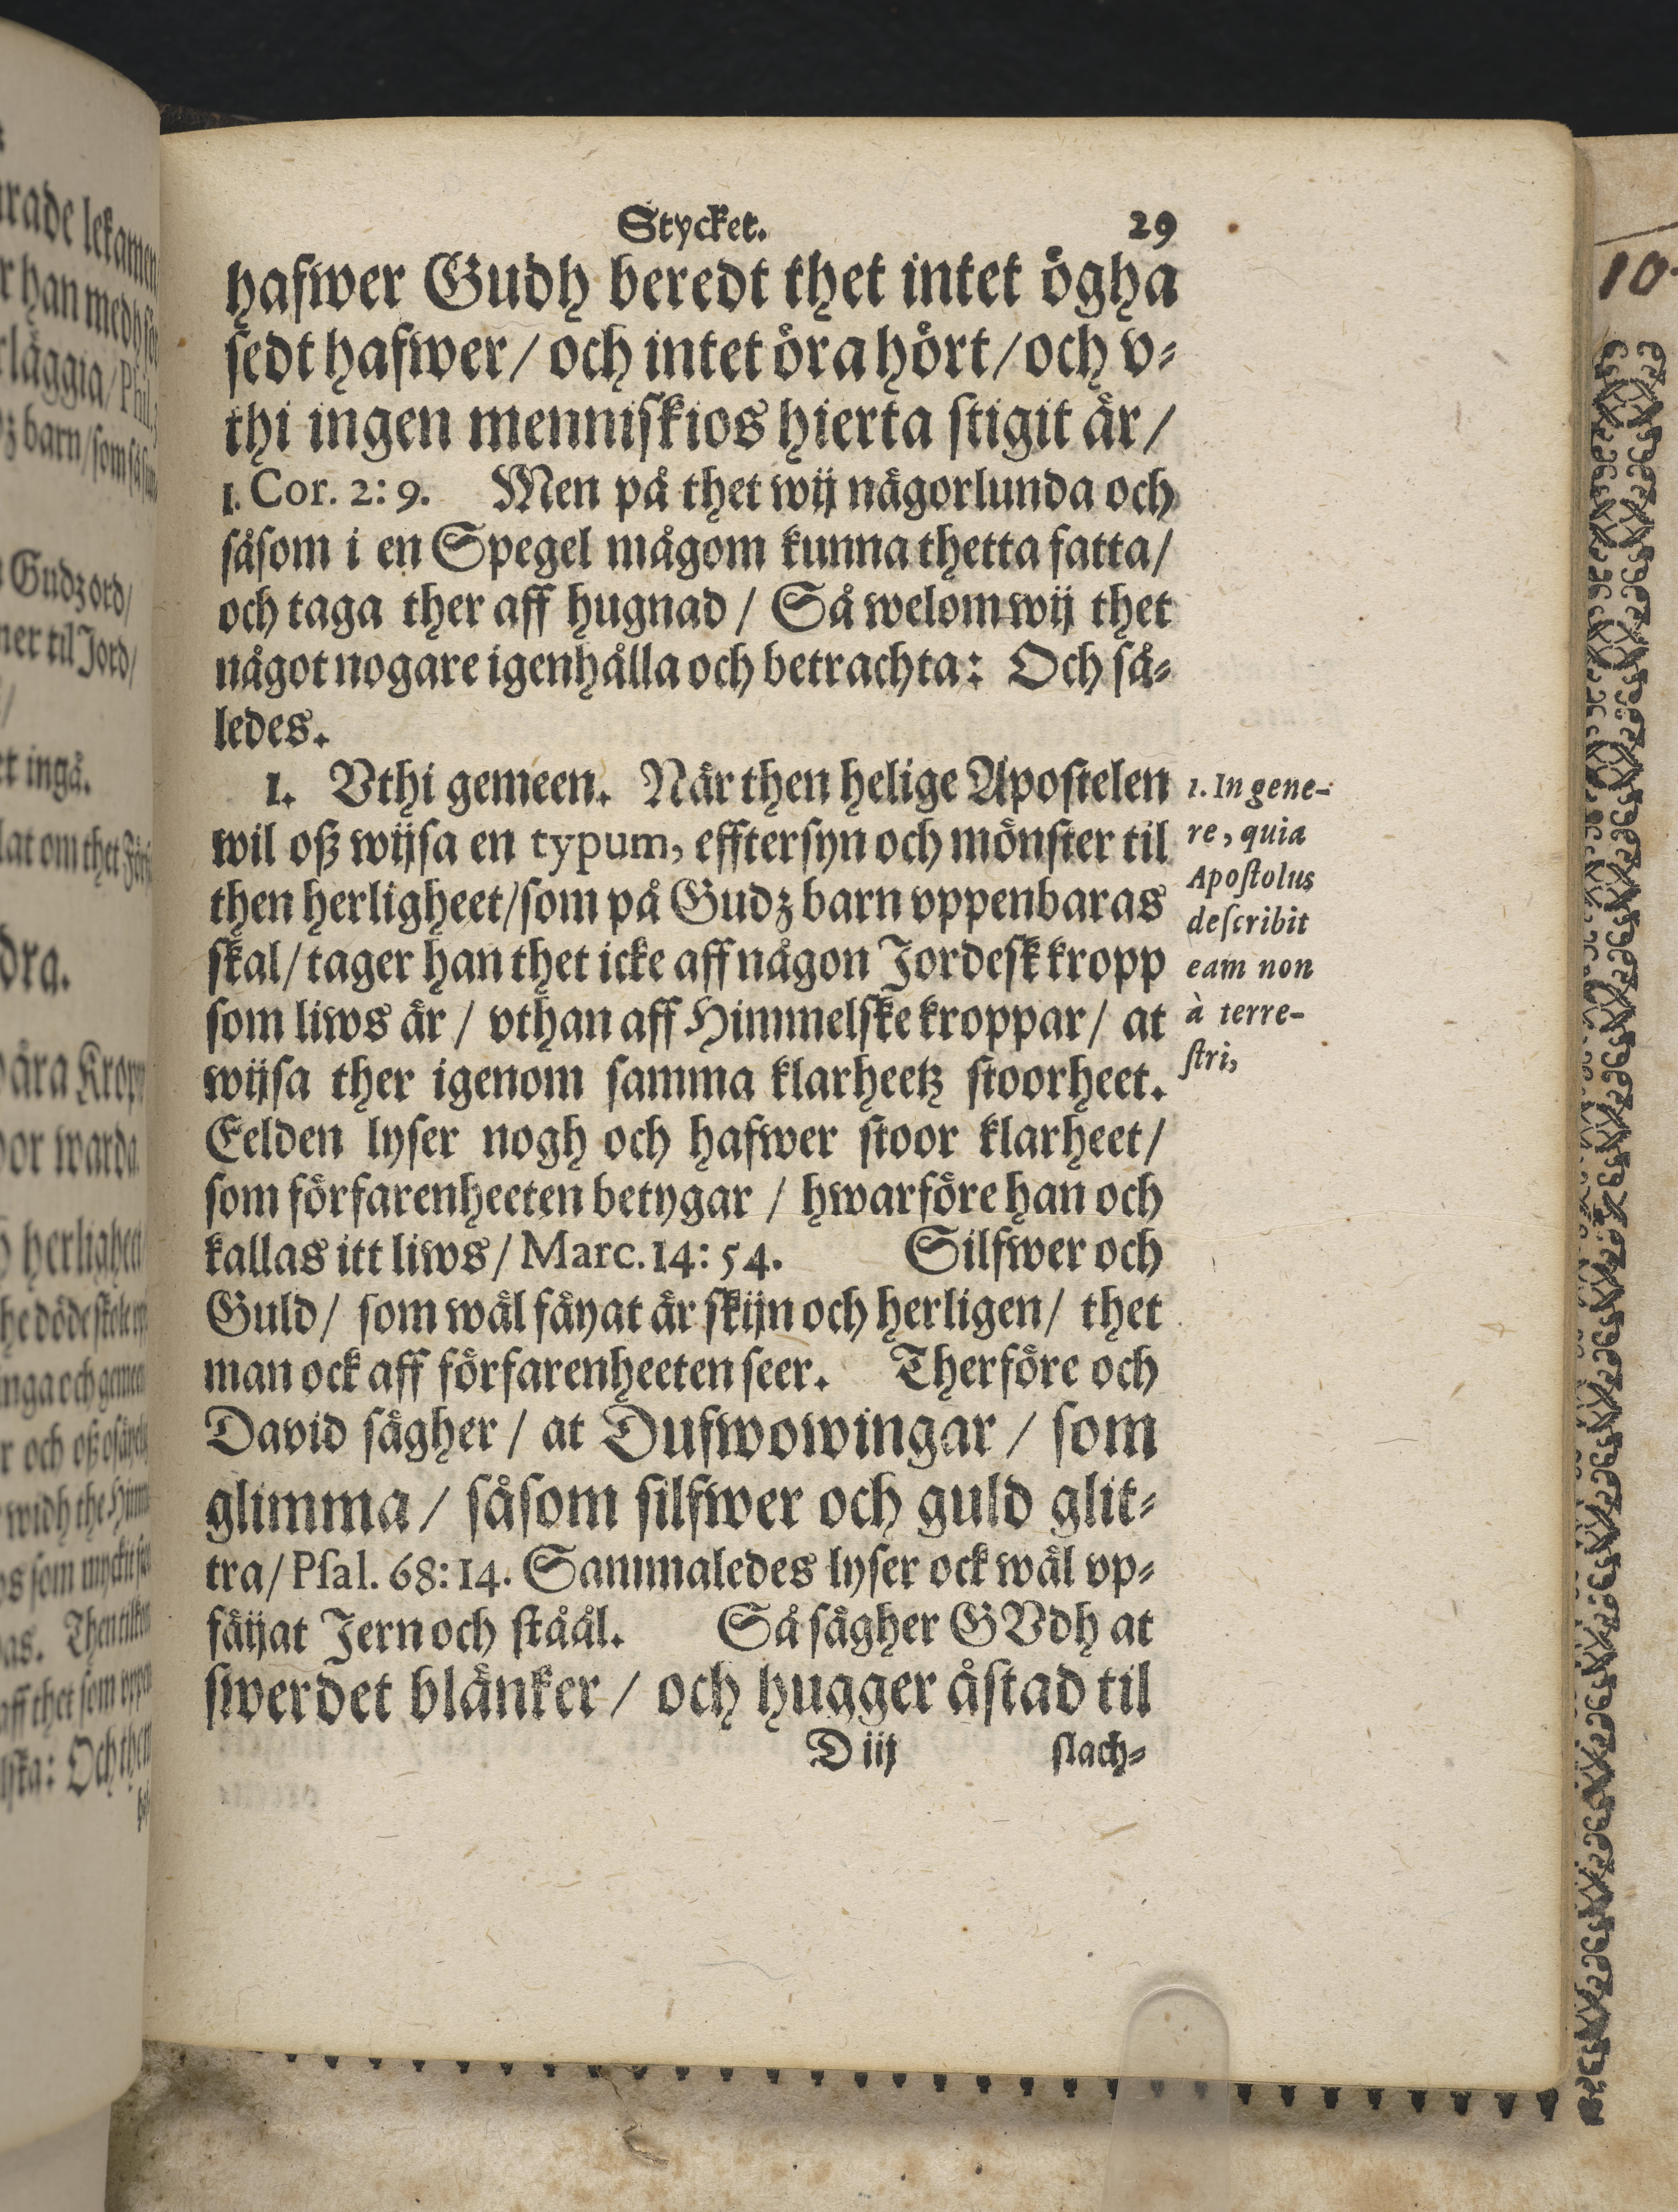 Stycket. 29
hafwer Gudh beredt thet intet ögha
sedt hafwer / och intet öra hört / och v-
thi ingen menniskios hierta stigit är /
1. Cor. 2: 9. Men på thet wij någorlunda och
såsom i en Spegel mågom kunna thetta fatta /
och taga ther aff hugnad / Så welom wij thet
något nogare igenhålla och betrachta: Och så-
ledes.
1. Vthi gemeen. När then helige Apostelen
wil oß wijsa en typum, efftersyn och mönster til
then herligheet / som på Gudz barn vppenbaras
skal / tager han thet icke aff någon Jordesk kropp
som liws är / vthan aff Himmelske kroppar / at
wijsa ther igenom samma klarheetz stoorheet.
Eelden lyser nogh och hafwer stoor klarheet /
som förfarenheeten betygar / hwarföre han och
kallas itt liws / Marc. 14: 54. Silfwer och
Guld / som wäl fäyat är skijn och herligen / thet
man ock aff förfarenheeten seer. Therföre och
David sägher / at Dufwowingar / som
glimma / såsom silfwer och guld glit-
tra / Psal. 68: 14. Sammaledes lyser ock wäl vp-
fäijat Jern och ståål. Så sägher GVdh at
swerdet blänker / och hugger åstad til
D iij slach-
1. In gene-
re, quia
Apostolus
describit
eam non
à terre-
stri,
rade lekamen
r han medh
läggia / Phil.
z barn / som
Gudz ord /
ner til Jord /
et ingå.
lat om thet
dra.
åra Kropp
or warda
herligheet
och
widh the
as. Then
aff thet som
Och then
10